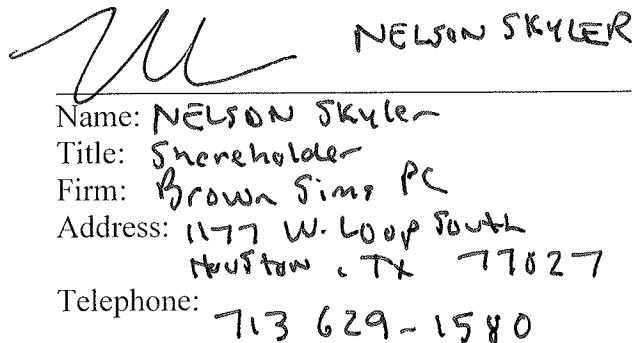 NELSON SKYLER
Name: NELSON Skyler
Title: Shareholder
Firm: Brown Sims PC
Address: 1177 W. Loop South
Houston, TX 77027
Telephone: 713 629-1580